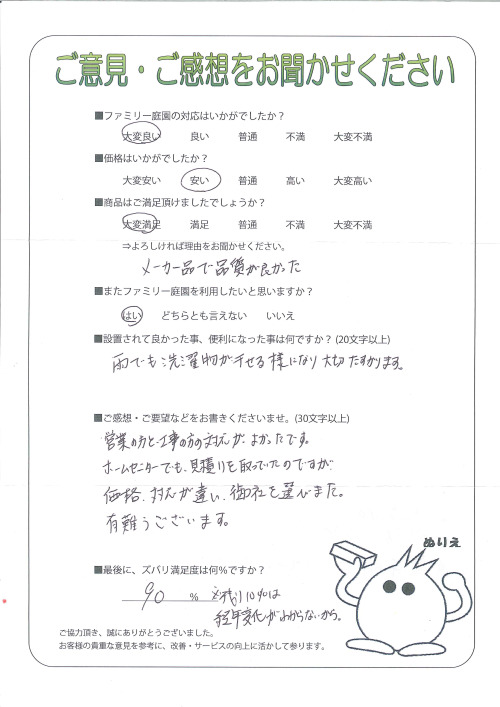 ご意見・ご感想をお聞かせください
■ファミリー庭園の対応はいかがでしたか？
大変良い 良い 普通 不満 大変不満
■価格はいかがでしたか？
大変安い 安い 普通 高い 大変高い
■商品はご満足頂けましたでしょうか？
大変満足 満足 普通 不満 大変不満
⇒よろしければ理由をお聞かせください。
メーカー品で品質が良かった
■またファミリー庭園を利用したいと思いますか？
はい どちらとも言えない いいえ
■設置されて良かった事、便利になった事は何ですか？(20文字以上)
雨でも洗濯物が干せる様になり大切たすかります。
■ご感想・ご要望などをお書きくださいませ。(30文字以上)
営業の方と工事の方の対応がよかったです。
ホームセンターでも、見積りを取っていたのですが
価格、対応が違い、御社を選びました。
有難うございます。
ぬりえ
■最後に、ズバリ満足度は何％ですか？
90 % ※残り10%は
経年変化がわからないから。
ご協力頂き、誠にありがとうございました。
お客様の貴重な意見を参考に、改善・サービスの向上に活かして参ります。